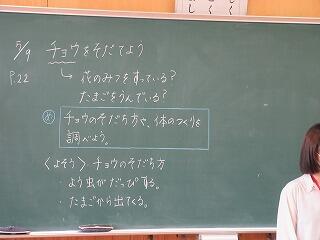 5/9 チョウをそだてよう
P.22
→花のみつをすっている?
たまごをうんでいる?
め チョウのそだち方や、体のつくりを
調べよう。
〈よそう〉チョウのそだち方
・よう虫がだっぴする。
・たまごから出てくる。